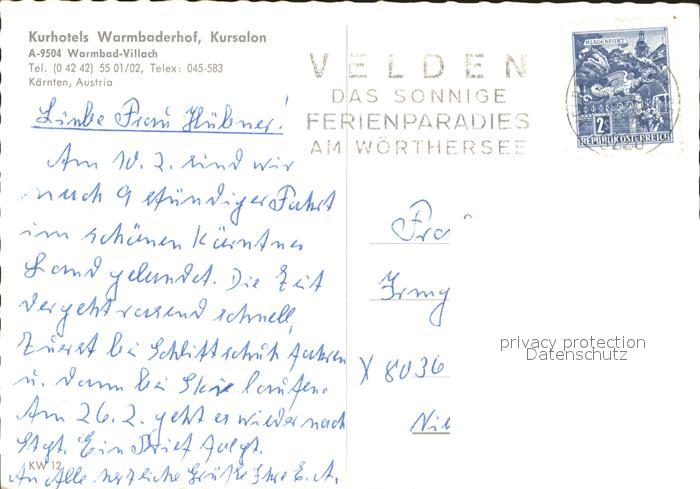 Kurhotels Warmbaderhof, Kursalon
A-9504 Warmbad-Villach
Tel. (0 42 42) 55 01/02, Telex: 045-583
Kärnten, Austria
VELDEN
DAS SONNIGE
FERIENPARADIES
AM WÖRTHERSEE
KLAGENFURT
2 S
REPUBLIK ÖSTERREICH
Liebe Frau Hübner!
Am 10. 2. sind wir
nach 9 stündiger Fahrt
im schönen Kärntner
Land gelandet. Die Zeit
vergeht rasend schnell,
Zuerst bei Schlittschuh fahren
u. dann bei Skie laufen.
Am 26. 2. geht es wieder nach
Stgt. Ein Brief folgt.
An Alle herzliche Grüße Ihre E. A.
KW 12
Frau
Irmg
X 8036
Nie
privacy protection
Datenschutz